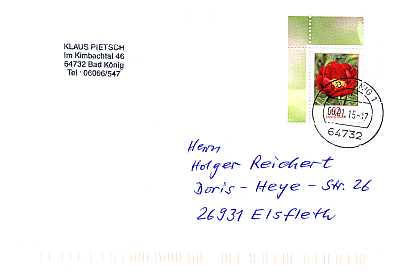 KLAUS PIETSCH
Im Kimbachtal 46
64732 Bad König
Tel · 06066/547
Herrn
Holger Reichert
Doris - Heye - Str. 26
26931 Elsfleth
64732